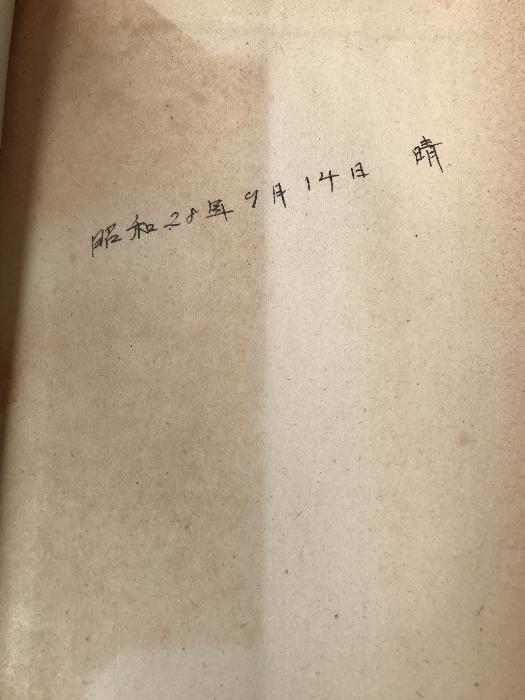 昭和28年9月14日 晴